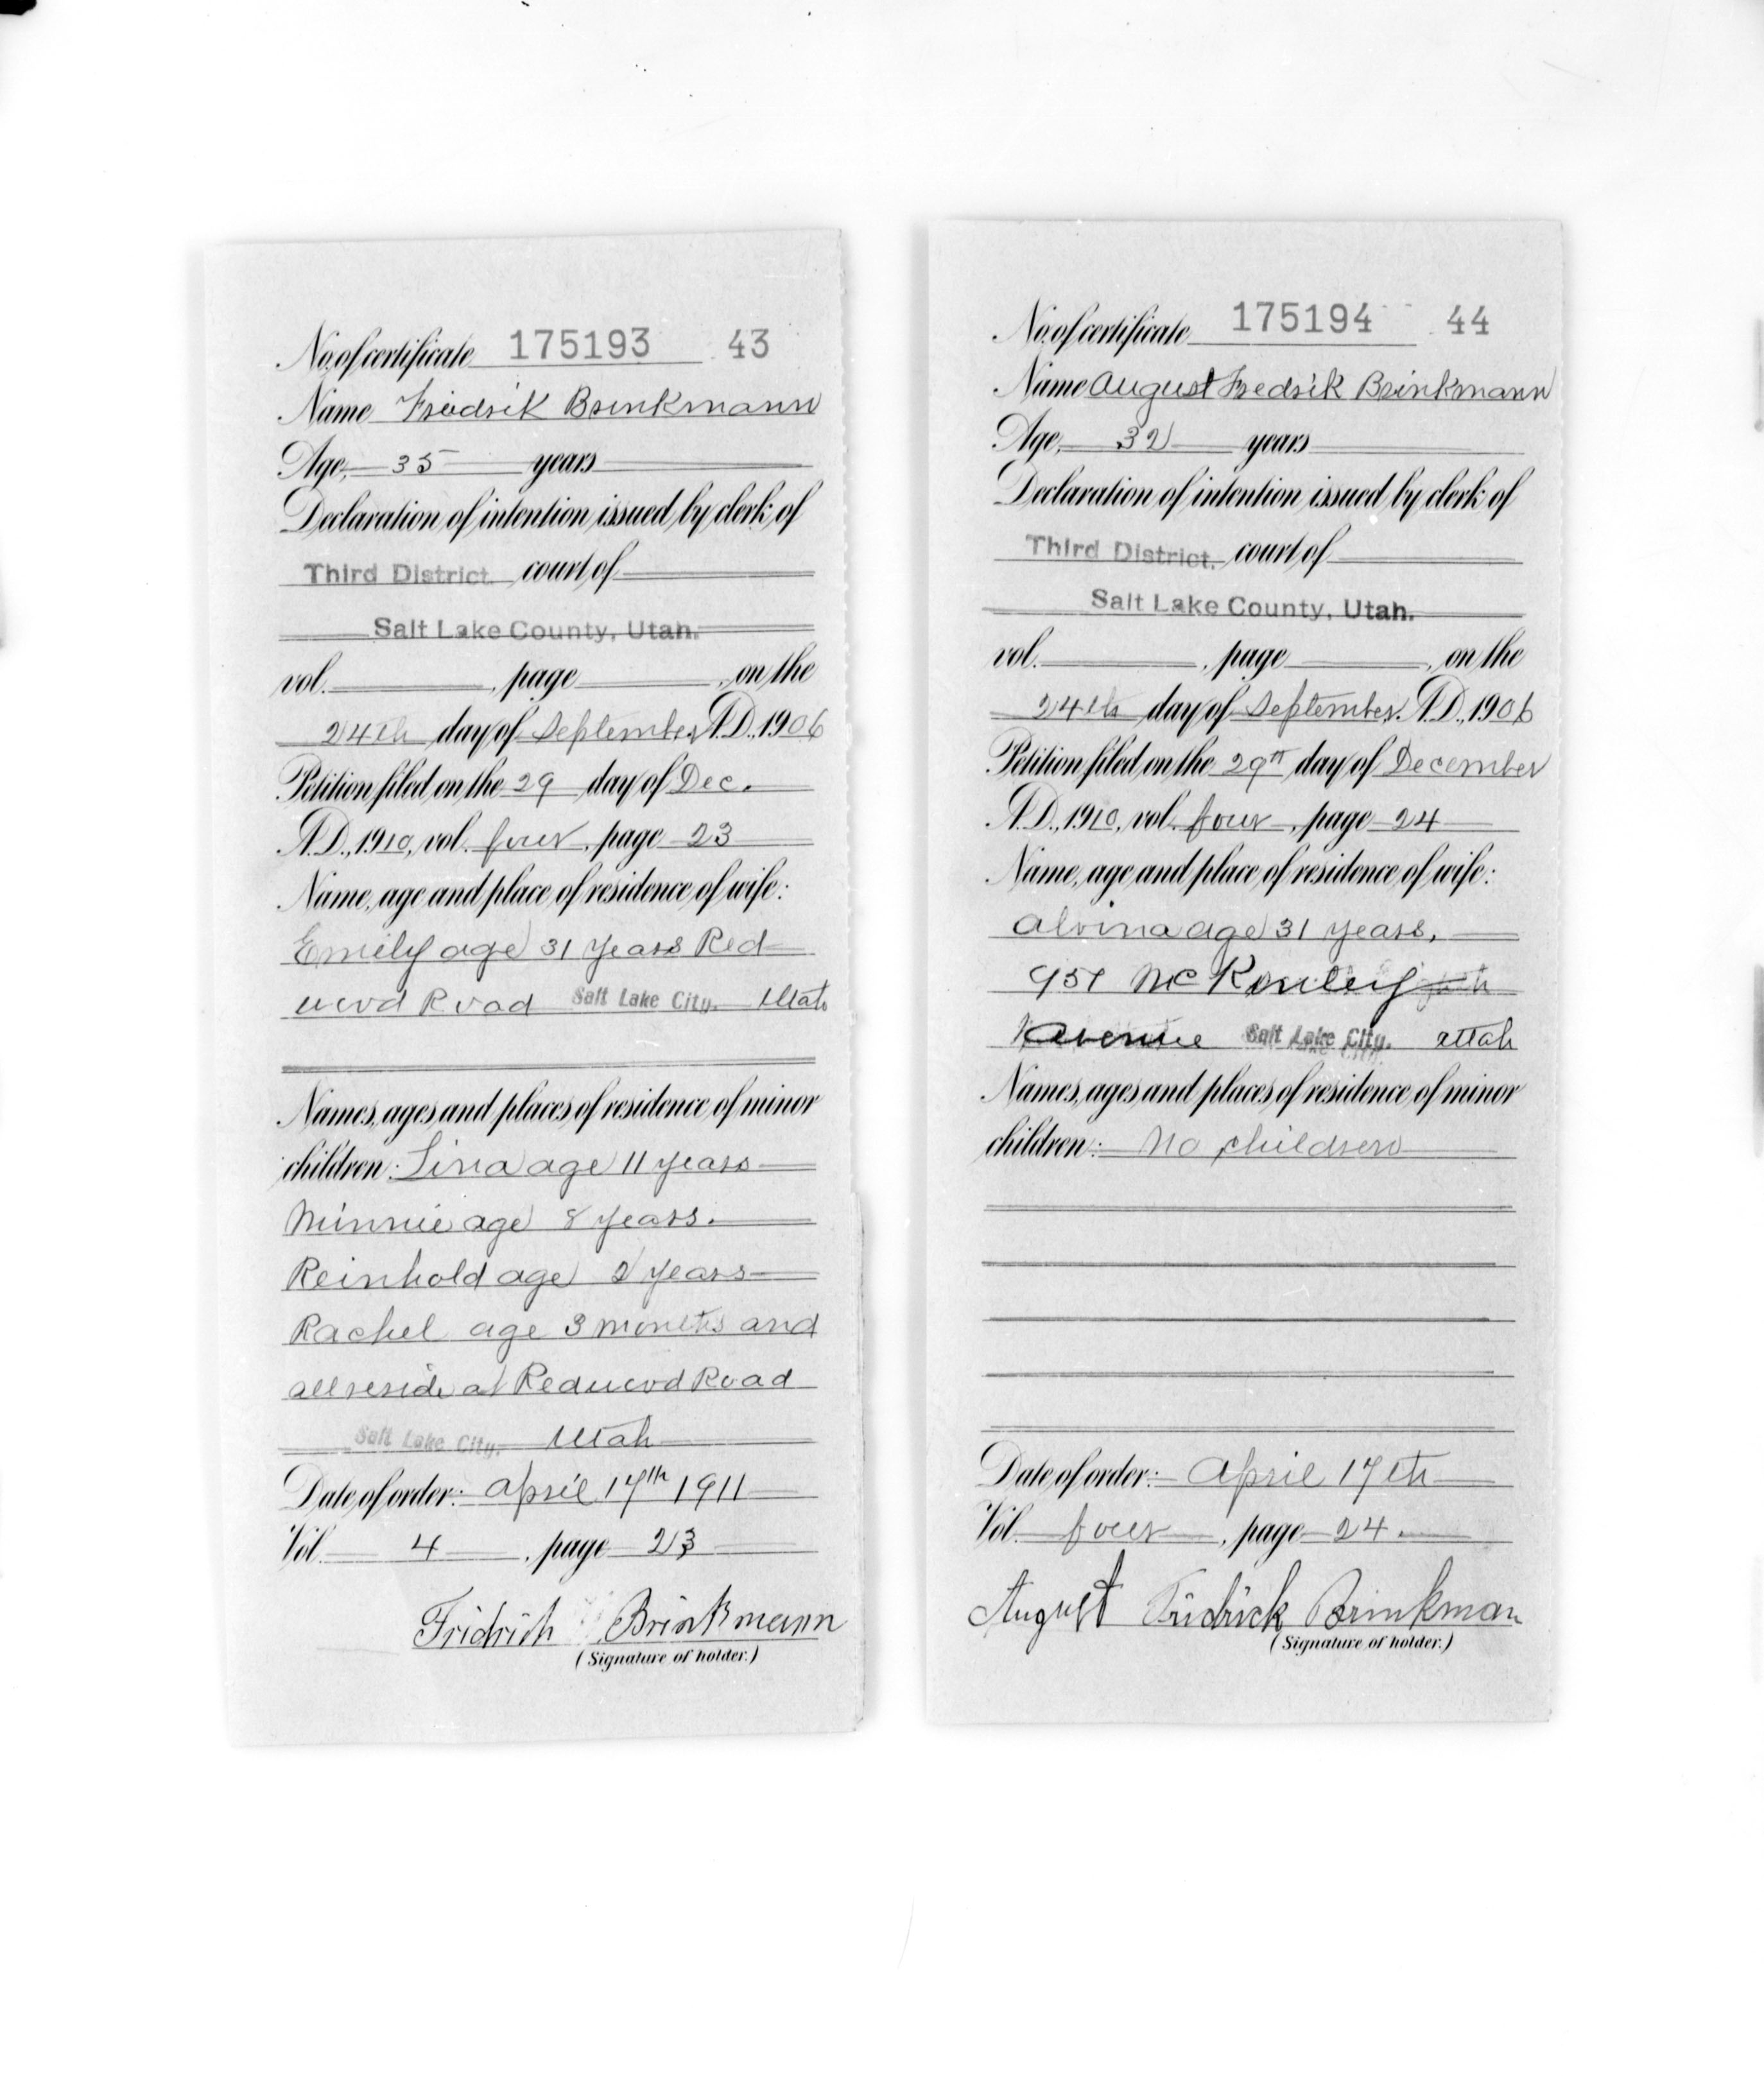 No. of certificate 175193 43
Name Friedrik Brinkmann
Age, 35 years
Declaration of intention issued by clerk of
Third District. court of
Salt Lake County, Utah.
vol. , page , on the
24th day of September A.D., 1906
Petition filed on the 29 day of Dec.
A.D., 1910, vol. four, page 23
Name, age and place of residence of wife:
Emily age 31 years Red
wood Road Salt Lake City. Utah
Names, ages and places of residence of minor
children: Lina age 11 years
Minnie age 8 years.
Reinhold age 2 years
Rachel age 3 months and
all reside at Redwood Road
Salt Lake City. Utah
Date of order: April 17th 1911
Vol. 4, page 23
Fridrich Brinkmann
(Signature of holder.)
No. of certificate 175194 44
Name August Fredrik Brinkmann
Age, 32 years
Declaration of intention issued by clerk of
Third District. court of
Salt Lake County, Utah.
vol. , page , on the
24th day of September. A.D., 1906
Petition filed on the 29th day of December
A.D., 1910, vol. four, page 24
Name, age and place of residence of wife:
Alvina age 31 years,
957 McKinley
Avenue Salt Lake City. Utah
Names, ages and places of residence of minor
children: No children
Date of order: April 17th
Vol. four, page 24.
August Fridrick Brinkman
(Signature of holder.)